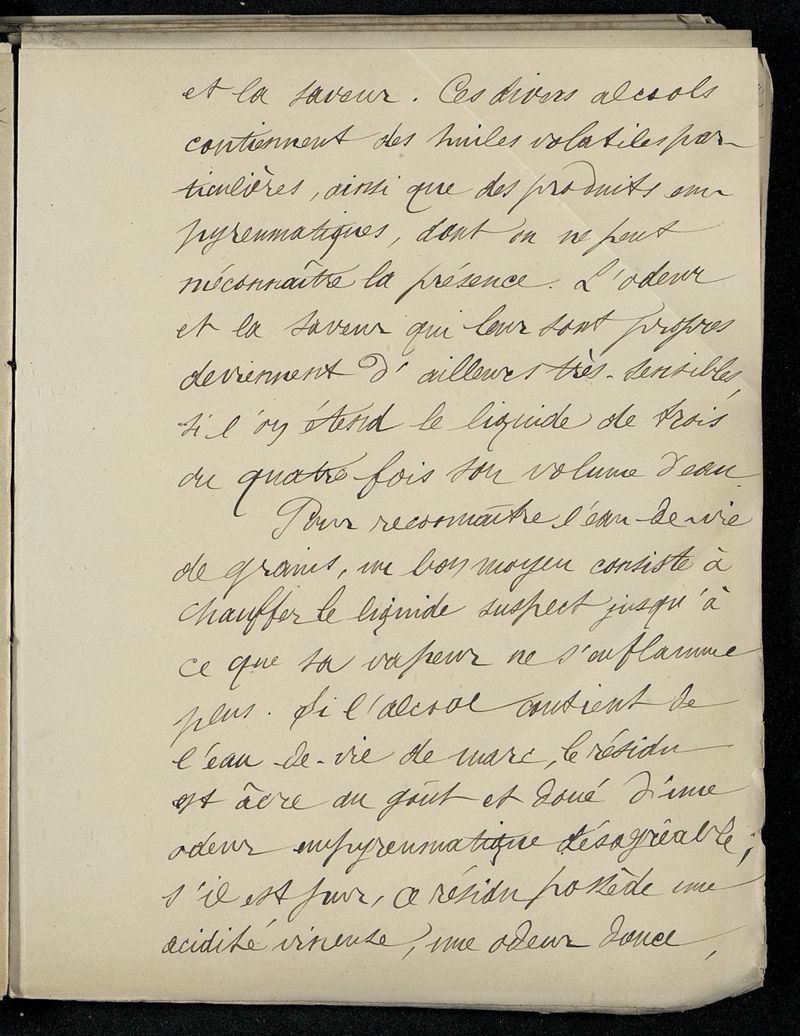 et la saveur. Ces divers alcools
contiennent des huiles volatiles par-
ticulières, ainsi que des produits em-
pyreumatiques, dont on ne peut
méconnaître la présence. L'odeur
et la saveur qui leur sont propres
deviennent d'ailleurs très-sensibles,
si l'on étend le liquide de trois
ou quatre fois son volume d'eau.
Pour reconnaître l'eau-de-vie
de grains, un bon moyen consiste à
chauffer le liquide suspect jusqu'à
ce que sa vapeur ne s'enflamme
plus. Si l'alcool contient de
l'eau-de-vie de marc, le résidu
est âcre au goût et doué d'une
odeur empyreumatique désagréable;
s'il est pur, ce résidu possède une
acidité vineuse, une odeur douce,